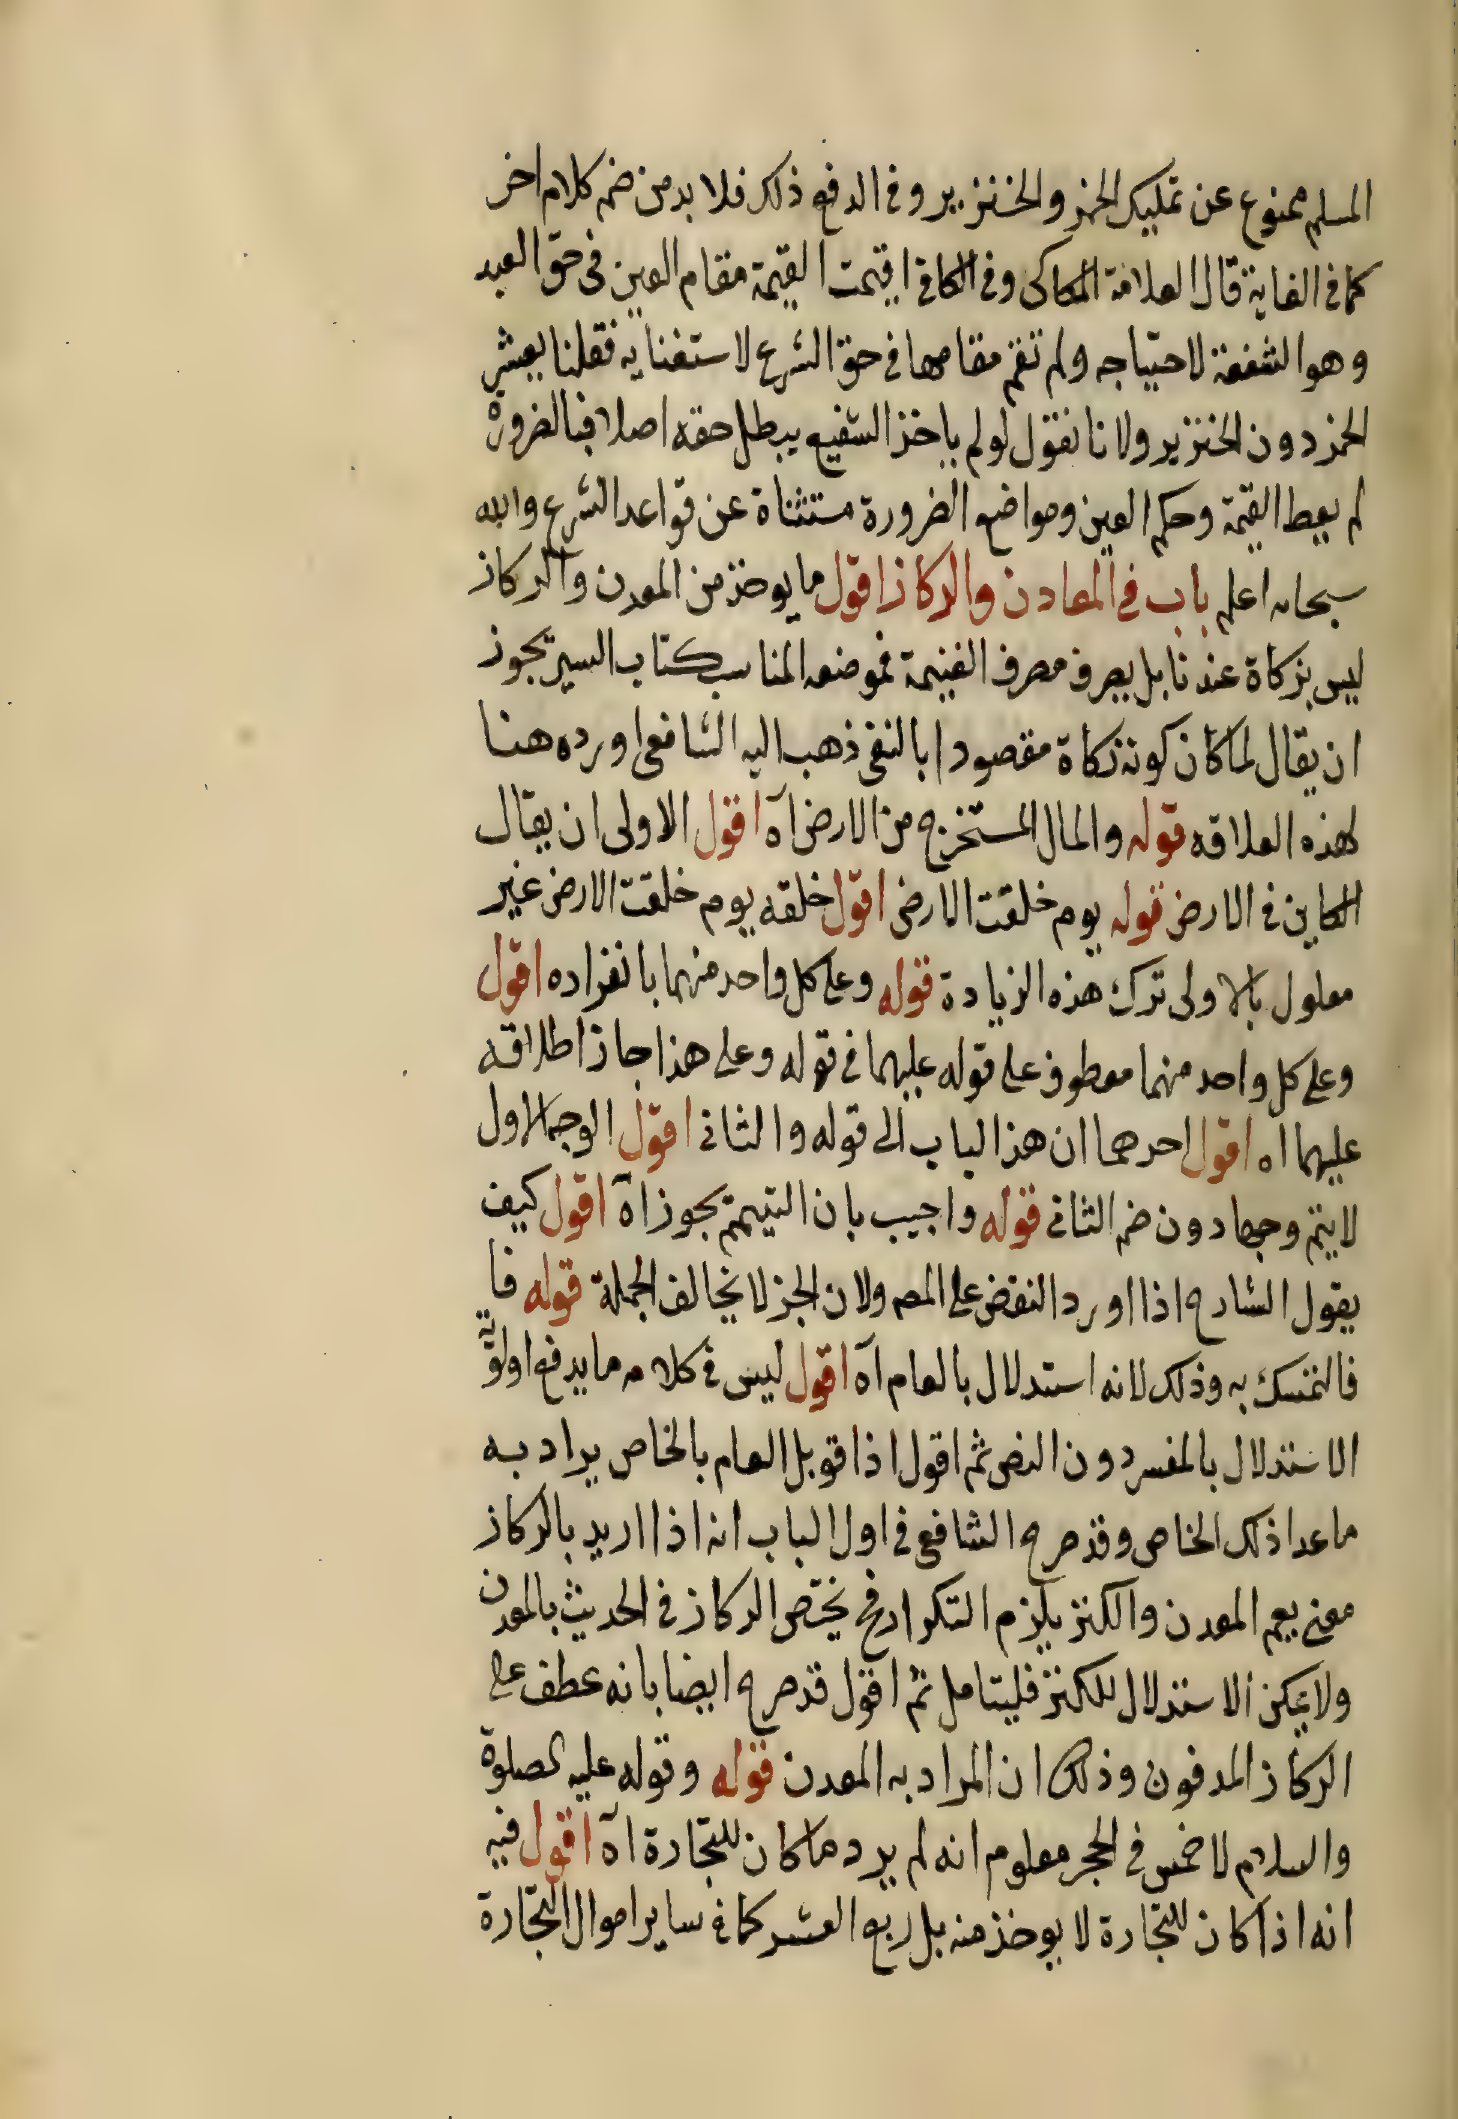 المسلم ممنوع عن تمليك الخمر والخنزير وفي الدفع ذلك فلا بد من ضم كلام اخر
كما في الغاية قال العلامة الكاكي وفي الكافي اقيمت القيمة مقام العين في حق العبد
وهو الشفعة لاحتياجه ولم تقم مقامها في حق الشرع لاستغنايه فقلنا يعشر
الخمر دون الخنزير ولانا نقول لو لم ياخذ الشفيع يبطل حقه اصلا فبالضرورة
لم يعط القيمة وحكم العين ومواضع الضرورة مستثناة عن قواعد الشرع والله
سبحانه اعلم باب في المعادن والركاز اقول ما يوخذ من المعدن والركاز
ليس بزكاة عندنا بل يصرف مصرف الغنيمة فموضعه المناسب كتاب السير يجوز
ان يقال لما كان كونه زكاة مقصودا بالنفي ذهب اليه الشافعي اورده هنا
لهذه العلاقه قوله والمال المستخرج من الارض آه اقول الاولى ان يقال
الكاين في الارض قوله يوم خلقت الارض اقول خلقه يوم خلقت الارض غير
معلول بالاولى ترك هذه الزيادة قوله وعلى كل واحد منهما بانفراده اقول
وعلى كل واحد منهما معطوف على قوله عليهما في قوله وعلى هذا جاز اطلاقه
عليهما اه اقول احدهما ان هذا الباب الى قوله والثاني اقول الوجه الاول
لا يتم وجها دون ضم الثاني قوله واجيب بان التيمم يجوز آه اقول كيف
يقول الشارح اذا اورد النقض على المص ولان الجز لا يخالف الجملة قوله فا
فالتمسك به وذلك لانه استدلال بالعام آه اقول ليس في كلامه ما يدفع اولوية
الاستدلال بالمفسر دون النص ثم اقول اذا قوبل العام بالخاص يراد به
ما عدا ذلك الخاص وقد صرح الشافعي في اول الباب انه اذا اريد بالركاز
معنى يعم المعدن والكنز يلزم التكرار فح يختص الركاز في الحديث بالمعدن
ولا يمكن الاستدلال للكنز فليتامل ثم اقول قد صرح ايضا بانه عطف على
الركاز المدفون وذلك ان المراد به المعدن قوله وقوله عليه الصلوة
والسلام لا خمس في الحجر معلوم انه لم يرد ما كان للتجارة آه اقول فيه
انه اذا كان للتجارة لا يوخذ منه بل ربع العشر كما في ساير اموال التجارة